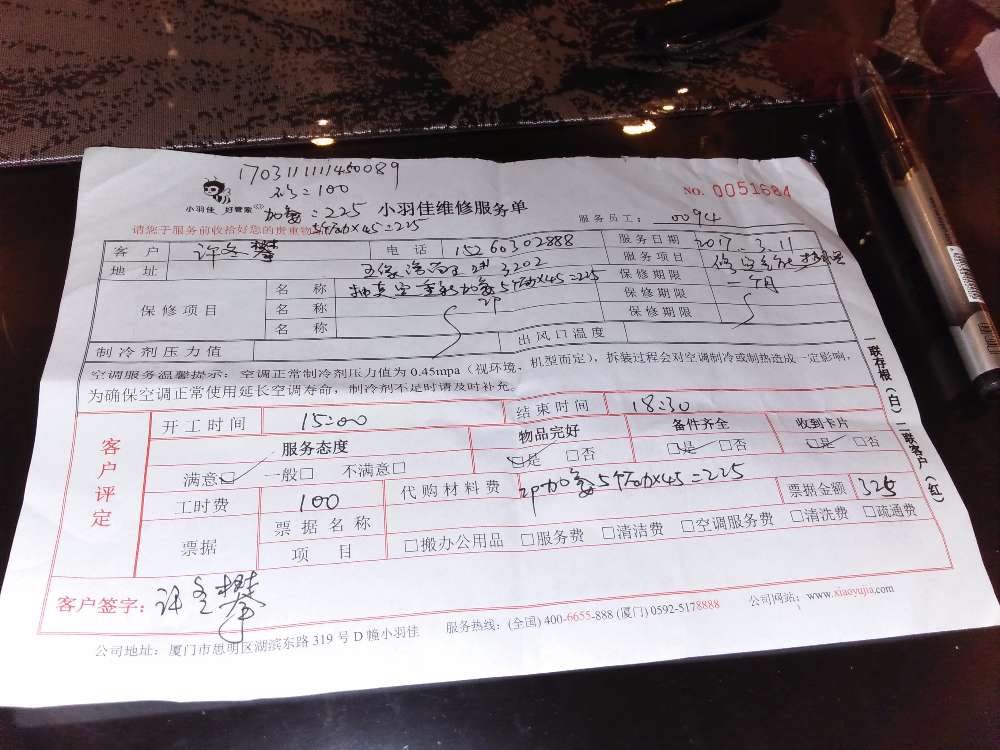 170311111450089
=100
NO. 0051684
小羽佳 好管家
加氟=225 小羽佳维修服务单
服务员工: 0094
请您于服务前收拾好您的贵重物 ×45=225
客户 电话 15260302888 服务日期 2017.3.11
地址 3202 服务项目
保修项目 名称 抽真空 加氟5 ×45=225 保修期限 一个月
2P
名称 保修期限
名称 保修期限
制冷剂压力值 出风口温度
空调服务温馨提示：空调正常制冷剂压力值为 0.45mpa（视环境，机型而定），拆装过程会对空调制冷或制热造成一定影响，
为确保空调正常使用延长空调寿命，制冷剂不足时请及时补充。
客户评定
开工时间 15:00 结束时间 18:30
服务态度 物品完好 备件齐全 收到卡片
满意□ 一般□ 不满意□ □是 □否 □是 □否 □是 □否
工时费 100 代购材料费 2P加氟5 ×45=225 票据金额 325
票据 票据名称
项目 □搬办公用品 □服务费 □清洁费 □空调服务费 □清洗费 □疏通费
一联存根（白）二联客户（红）
客户签字：
公司地址：厦门市思明区湖滨东路 319 号 D 幢小羽佳 服务热线：(全国) 400-6655-888 (厦门) 0592-5178888 公司网站：www.xiaoyujia.com